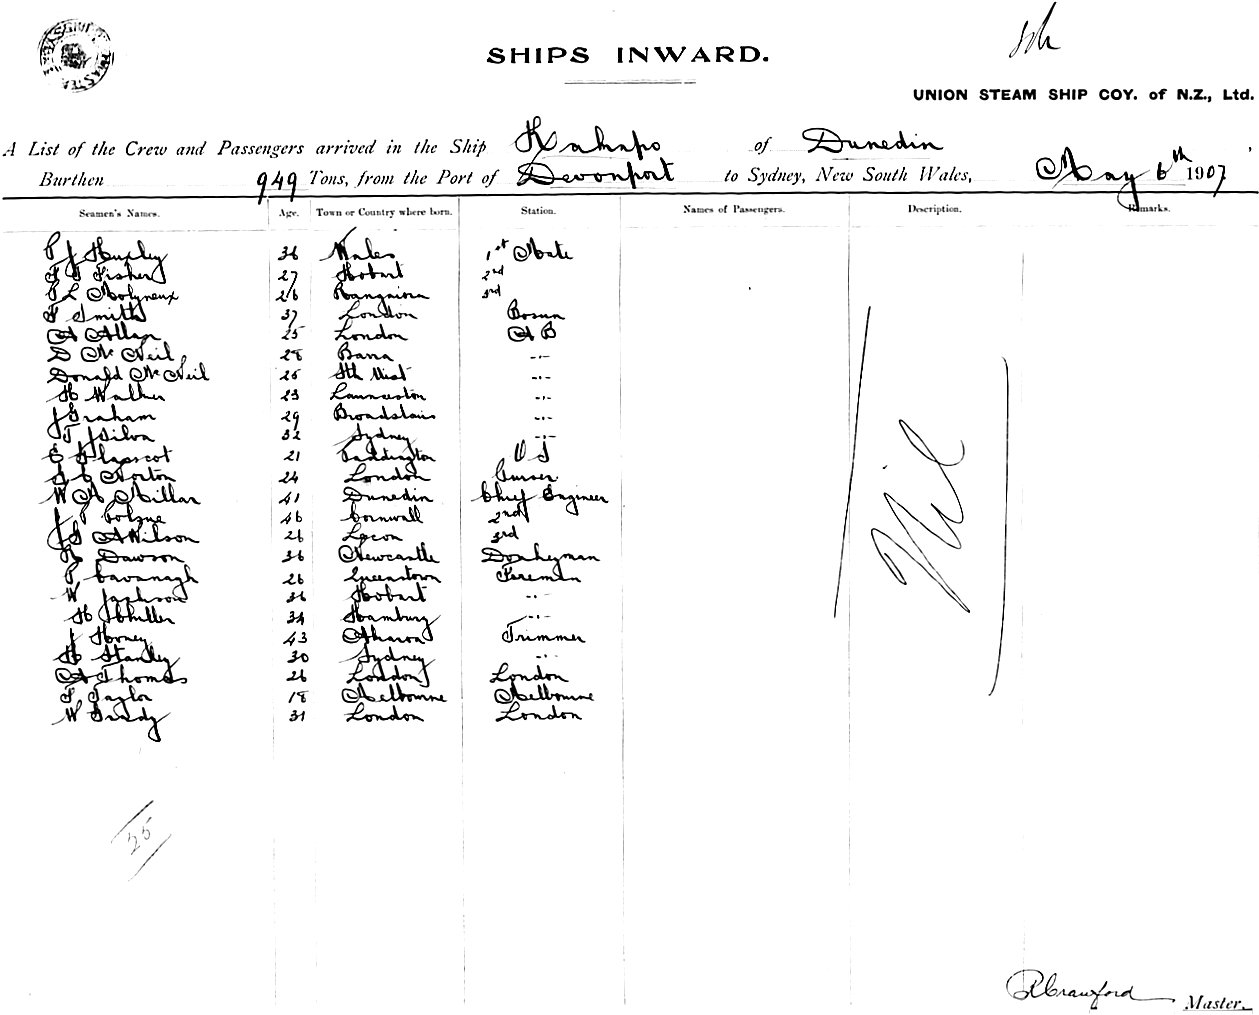 SHIPS INWARD.
UNION STEAM SHIP COY. of N.Z., Ltd.
A List of the Crew and Passengers arrived in the Ship Kahapo of Dunedin
Burthen 949 Tons, from the Port of Devonport to Sydney, New South Wales, May 6th 1907
Seamen's Names. Age. Town or Country where born. Station. Names of Passengers. Description. Remarks.
P J Huxley 36 Wales 1st Mate
Fisher 27 Hobart 2nd
L Molyneux 26 Rangiora 3rd
F Smith 37 London Bosun
A Allan 25 London A B
D McNeil 28 Barra -"-
Donald McNeil 25 Sth Uist -"-
H Walker 23 Launceston -"-
J Graham 29 Broadstairs -"-
T Silva 32 Sydney -"-
E Slapscot 21 Paddington O S
Norton 24 London Purser
W A Millar 41 Dunedin Chief Engineer
J 46 Cornwall 2nd
J S A Wilson 26 3rd
R Dawson 36 Newcastle Donkeyman
P Cavanagh 26 Queenstown Fireman
W Jackson 36 Hobart -"-
H 34 Hamburg -"-
J Hooney 43 Trimmer
H Stanley 30 Sydney -"-
A Thomas 26 London London
F Taylor 18 Melbourne Melbourne
W Grady 31 London London
Nil
25
R Crawford
Master.